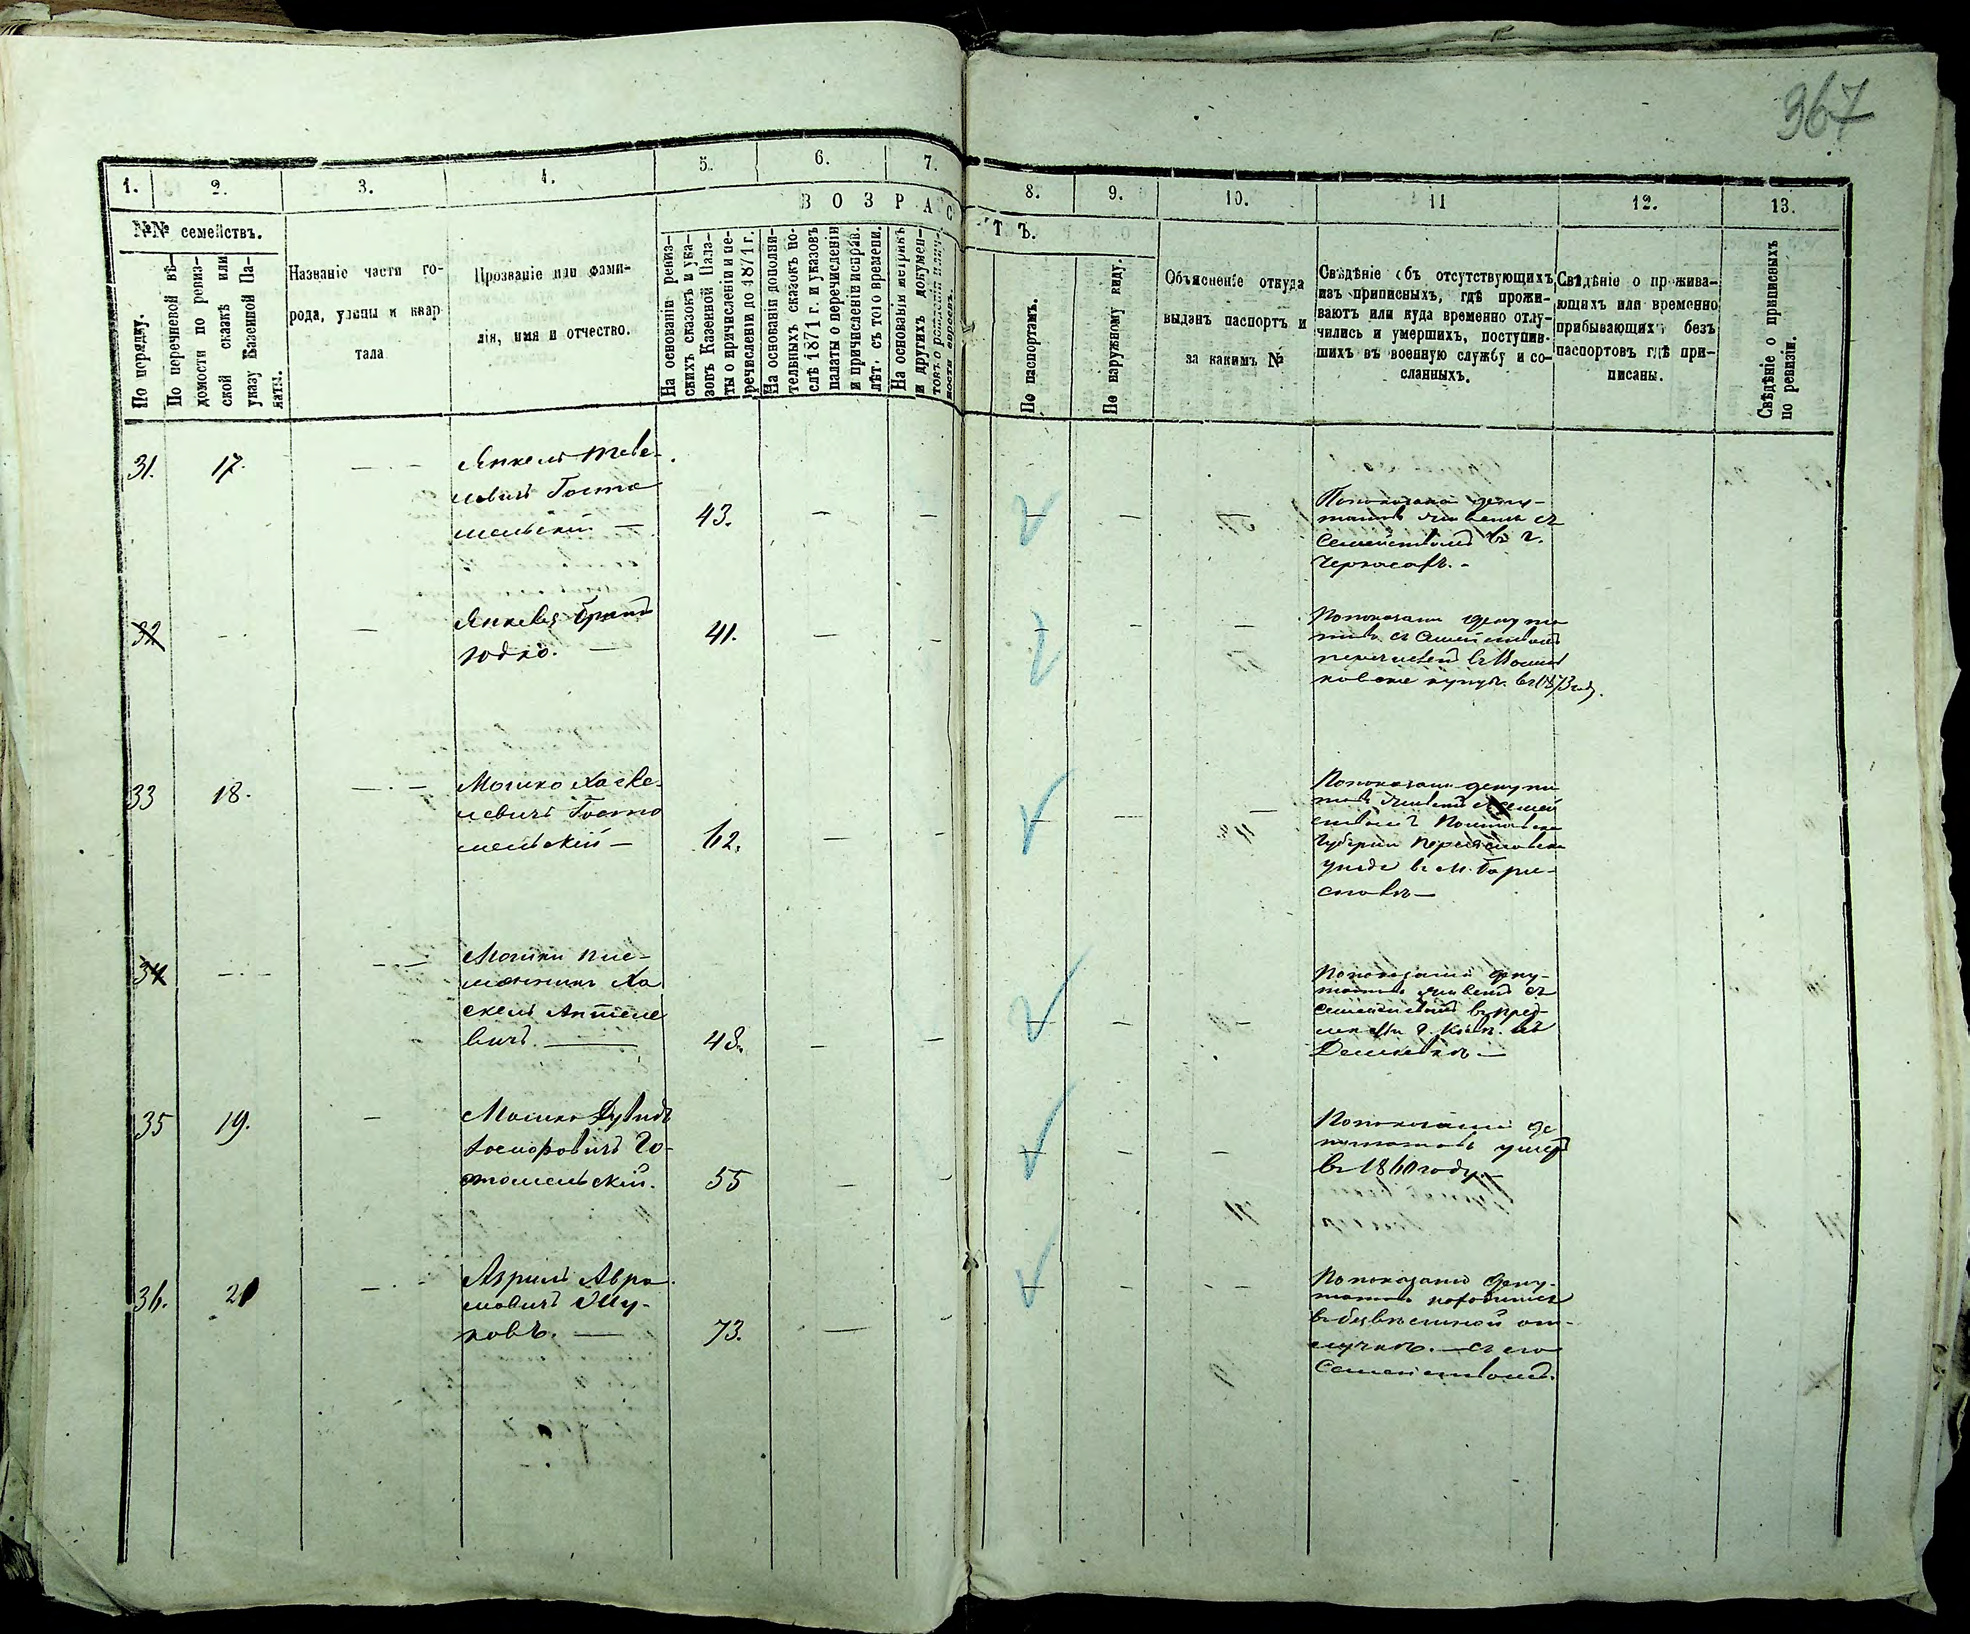 367
1. 2. 3. 4. 5. 6. 7.
8. 9. 10. 11 12. 13.
№№ семействъ.
В О З Р А С
Т Ъ.
По порядку.
По перечневой вѣ-
домости по ревиз-
ской сказкѣ или
указу Казенной Па-
латы.
Названіе части го-
рода, улицы и квар
тала
Прозваніе или фами-
лія, имя и отчество.
На основаніи ревиз-
скихъ сказокъ и ука-
зовъ Казенной Пала-
ты о причисленіи и пе-
речисленіи до 1871 г.
На основаніи дополни-
тельныхъ сказокъ по-
слѣ 1871 г. и указовъ
палаты о перечисленіи
и причисленіи исправ.
лѣт. съ того времени.
На основаніи метрикъ
и другихъ докумен-
товъ о рожденіи
ности евреевъ.
По паспортамъ.
По наружному виду.
Объясненіе откуда
выданъ паспортъ и
за какимъ №
Свѣдѣніе объ отсутствующихъ
изъ приписныхъ, гдѣ прожи-
ваютъ или куда временно отлу-
чились и умершихъ, поступив-
шихъ въ военную службу и со-
сланныхъ.
Свѣдѣніе о прожива-
ющихъ или временно
прибывающихъ безъ
паспортовъ гдѣ при-
писаны.
Свѣдѣніе о приписныхъ
по ревизіи.
31. 17. — Янкель Теве-
левичъ Госто
мельскій — 43. — — — — —
По показанію депу-
татовъ живетъ съ
семействомъ въ г.
Черкасахъ. -
32 — — Янкеля братъ
Юдко. — 41. — — — — —
По показанію депута
товъ съ семействомъ
перечисленъ въ
купцы въ 1873 году.
33 18. — Мошко Хаске-
левичъ Госто
мельскій — 62. — — — — —
По показанію депута
товъ живетъ съ семей
ствомъ Полтавской
Губерніи Переяславскаго
уѣзда въ м. Бары-
шовкѣ —
34 — — Мошки пле-
мянникъ Ха
скель
вичъ. — 48. — — — — —
По показанію депу-
татовъ живетъ съ
семействомъ въ пред-
мѣстьи г. Кіева. въ
Деміевкѣ —
35 19. — Мошко Дувидъ
Го-
стомельскій. 55 — — — —
По показанію де
путатовъ умеръ
въ 1860 году. —
36. 20 — Азриль Авра
мовичъ
ковъ. — 73. — — — —
По показанію депу-
татовъ находится
въ безвѣстной от-
лучкѣ. — съ его
семействомъ.